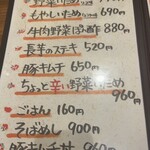 野菜いため
もやしいため 690円
牛肉野菜 880円
長芋のステキ 520円
豚キムチ 650円
ちょっと辛い野菜いため 960円
ごはん 160円
そばめし 900円
豚キムチ丼